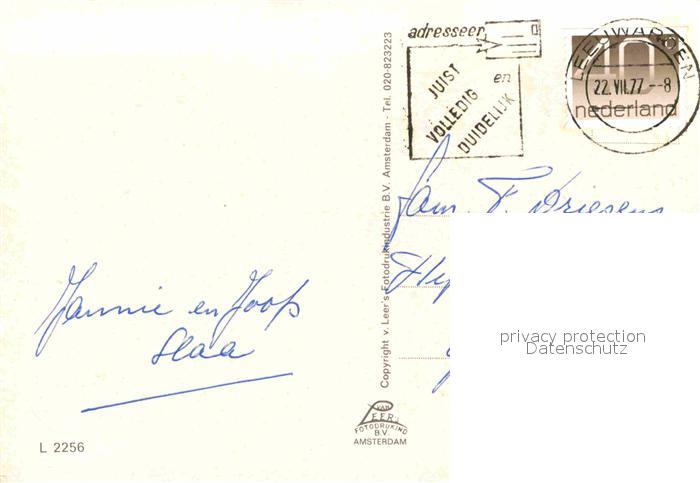 adresseer
JUIST
VOLLEDIG
en
DUIDELIJK
LEEUWARDEN
22.VII.77.--8
nederland
Fam. F. Driesens
Jannie en Joop
Slaa
Copyright v. Leer's Fotodrukindustrie B.V. Amsterdam - Tel. 020-823223
privacy protection
Datenschutz
VAN
LEER's
FOTODRUKIND
B.V.
AMSTERDAM
L 2256